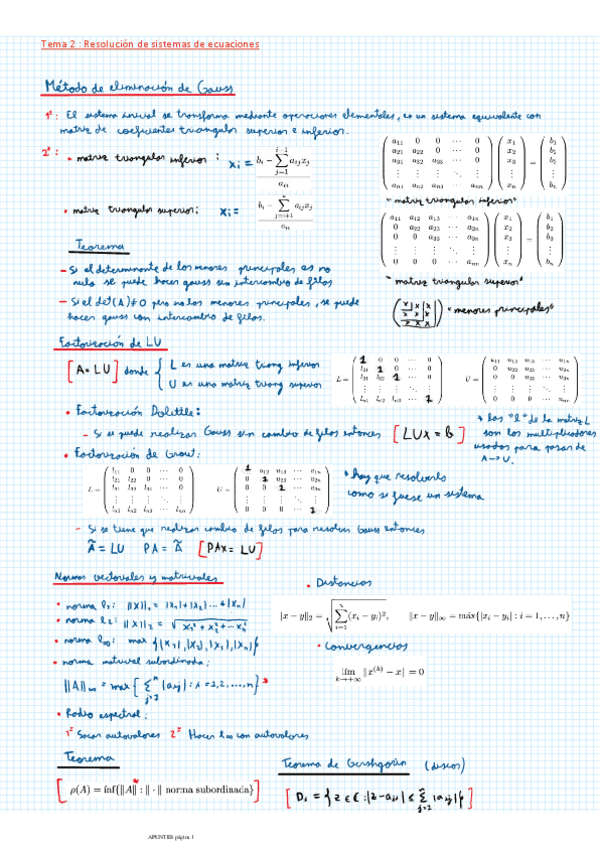 Tema 2 : Resolución de sistemas de ecuaciones
Método de eliminación de Gauss
1º: El sistema inicial se transforma mediante operaciones elementales, en un sistema equivalente con
matriz de coeficientes triangular superior e inferior.
2º: • matriz triangular inferior : xi = bi − Σ_{j=1}^{i−1} aij xj / aii
( a11 0 0 ⋯ 0 ; a21 a22 0 ⋯ 0 ; a31 a32 a33 ⋯ 0 ; ⋮ ⋮ ⋮ ⋱ ⋮ ; an1 an2 an3 ⋯ ann ) ( x1 ; x2 ; x3 ; ⋮ ; xn ) = ( b1 ; b2 ; b3 ; ⋮ ; bn )
"matriz triangular inferior"
• matriz triangular superior: xi = bi − Σ_{j=i+1}^{n} aij xj / aii
( a11 a12 a13 ⋯ a1n ; 0 a22 a23 ⋯ a2n ; 0 0 a33 ⋯ a3n ; ⋮ ⋮ ⋮ ⋱ ⋮ ; 0 0 0 ⋯ ann ) ( x1 ; x2 ; x3 ; ⋮ ; xn ) = ( b1 ; b2 ; b3 ; ⋮ ; bn )
"matriz triangular superior"
Teorema
– Si el determinante de los menores principales es no
nulo se puede hacer gauss sin intercambio de filas
– Si el det(A)≠0 pero no los menores principales, se puede
hacer gauss con intercambio de filas.
"menores principales"
Factorización de LU
[A = LU] donde { L es una matriz triang inferior
U es una matriz triang superior
L = ( 1 0 0 ⋯ 0 ; l21 1 0 ⋯ 0 ; l31 l32 1 ⋯ 0 ; ⋮ ⋮ ⋮ ⋱ ⋮ ; ln1 ln2 ln3 ⋯ 1 ) U = ( u11 u12 u13 ⋯ u1n ; 0 u22 u23 ⋯ u2n ; 0 0 u33 ⋯ u3n ; ⋮ ⋮ ⋮ ⋱ ⋮ ; 0 0 0 ⋯ unn )
• Factorización Dolittle:
– Si se puede realizar Gauss sin cambio de filas entonces [LUx = b]
* las "l" de la matriz L
son los multiplicadores
usados para pasar de
A → U.
• Factorización de Crout:
L = ( l11 0 0 ⋯ 0 ; l21 l22 0 ⋯ 0 ; l31 l32 l33 ⋯ 0 ; ⋮ ⋮ ⋮ ⋱ ⋮ ; ln1 ln2 ln3 ⋯ lnn ) U = ( 1 u12 u13 ⋯ u1n ; 0 1 u23 ⋯ u2n ; 0 0 1 ⋯ u3n ; ⋮ ⋮ ⋮ ⋱ ⋮ ; 0 0 0 ⋯ 1 )
* hay que resolverlo
como si fuese un sistema
– Si se tiene que realizar cambio de filas para resolver Gauss entonces
Ã = LU PA = Ã [PAx = LU]
Normas vectoriales y matriciales
• norma l1: ||x||1 = |x1|+|x2|...+|xn|
• norma l2: ||x||2 = √(x1² + x2² + ⋯ xn²)
• norma l∞: max {|x1|, |x2|, |x3|, |xn|}
• norma matricial subordinada:
||A||∞ = max { Σ_{j=1}^{n} |aij| : i = 1,2,...,n }
• Radio espectral:
1º Sacar autovalores 2º Hacer l∞ con autovalores
• Distancias
||x − y||2 = √(Σ_{i=1}^{n} (xi − yi)²), ||x − y||∞ = máx{|xi − yi| : i = 1, . . . , n}
• Convergencias
lím_{k→+∞} ||x^(k) − x|| = 0
Teorema
[ρ(A) = ínf{||A|| : || · || norma subordinada}]
Teorema de Gershgorin (discos)
[Di = {z ∈ ℂ : |z − aii| ≤ Σ_{j=1}^{n} |aij|}]
APUNTES página 1